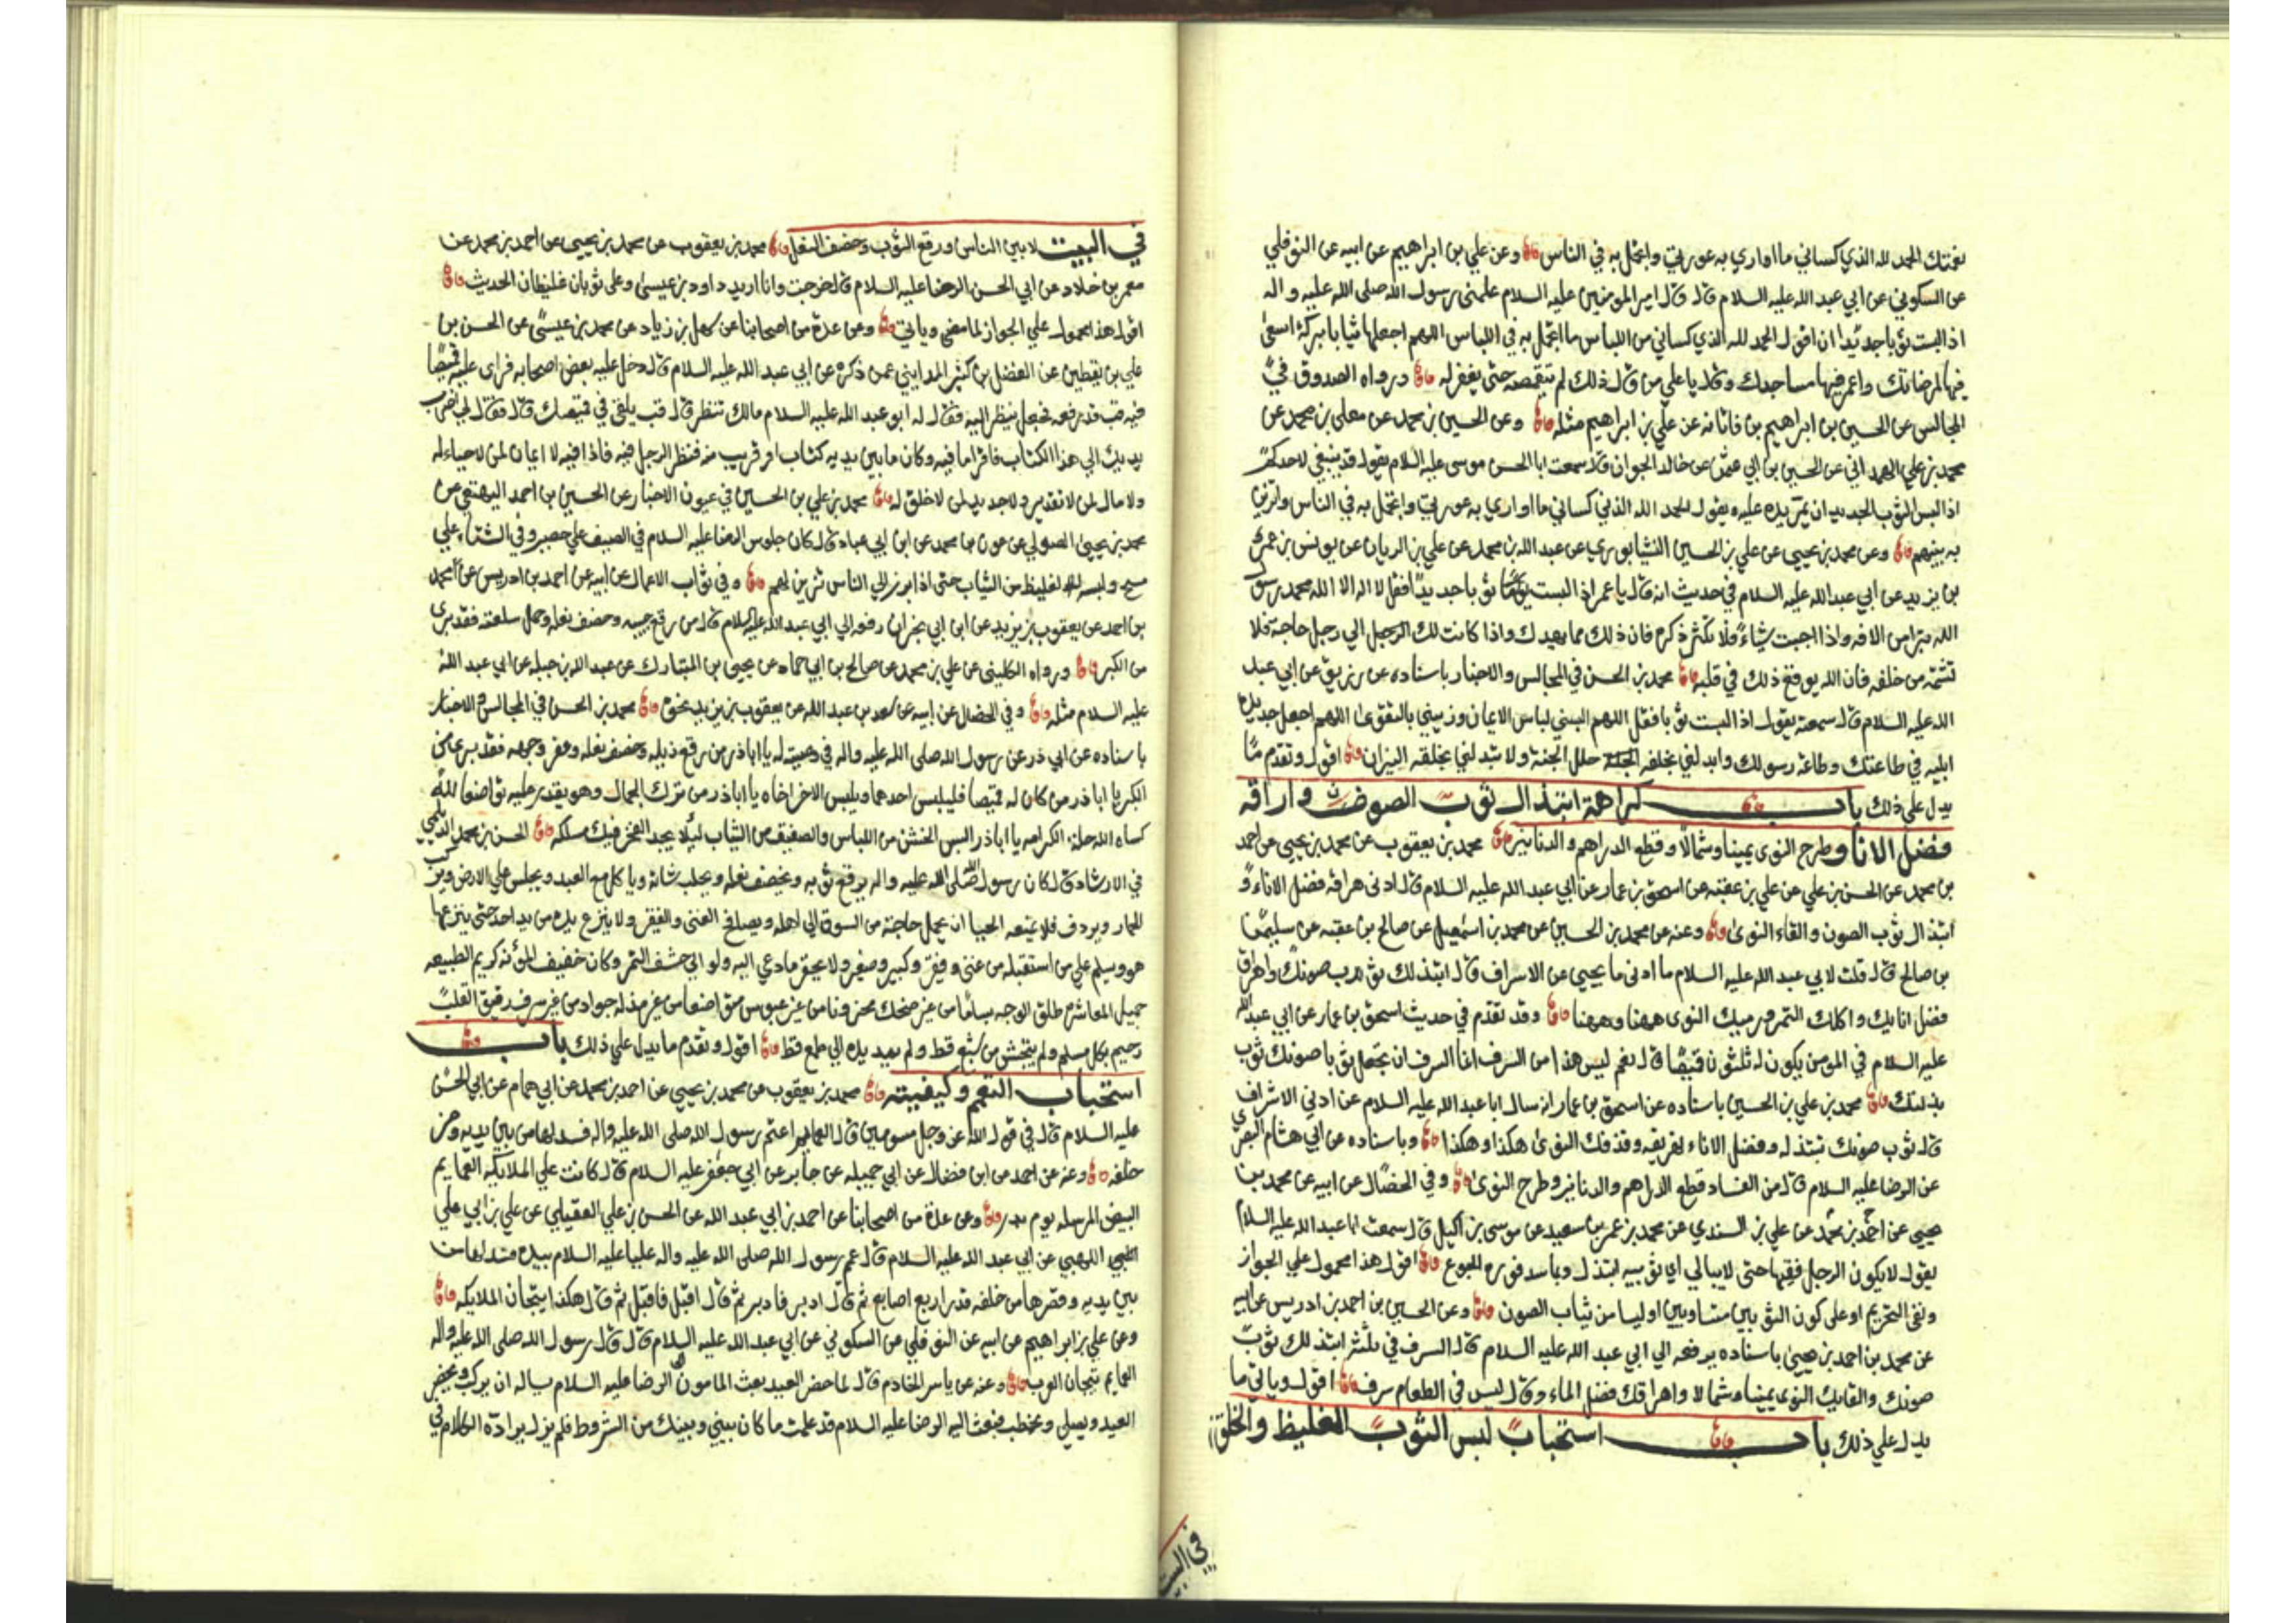 نعمتك الحمد لله الذي كساني ما اواري به عورتي واتجمل به في الناس وعن علي بن ابراهيم عن ابيه عن النوفلي
عن السكوني عن ابي عبد الله عليه السلام قال قال امير المومنين عليه السلام علمني رسول الله صلى الله عليه واله
اذا لبست ثوبا جديدا ان اقول الحمد لله الذي كساني من اللباس ما اتجمل به في اللباس اللهم اجعلها ثيابا بركة اسعى
فيها لمرضاتك واعمر فيها مساجدك وقال يا علي من قال ذلك لم يتقمصه حتى يغفر له ورواه الصدوق في
المجالس عن الحسين بن ابراهيم بن فاتانه عن علي بن ابراهيم مثله وعن الحسين بن محمد عن معلى بن محمد عن
محمد بن علي الهمداني عن الحسين بن ابي عثمن عن خالد الجوان قال سمعت ابا الحسن موسى عليه السلام يقول قد ينبغي لاحدكم
اذا لبس الثوب الجديد ان يمر يده عليه ويقول الحمد لله الذي كساني ما اواري به عورتي واتجمل به في الناس واتزين
به بينهم وعن محمد بن يحيى عن علي بن الحسين النشابوري عن عبد الله بن محمد عن علي بن الريان عن يونس بن عمر
بن يزيد عن ابي عبد الله عليه السلام في حديث انه قال يا عمر اذا لبست ثوبا جديدا فقل لا اله الا الله محمد رسول
الله تبرا من الافه واذا احببت شيا فلا تكثر ذكره فان ذلك مما يهدك واذا كانت لك الرجل الي رجل حاجة فلا
تشتمه من خلفه فان الله يوقع ذلك في قلبه محمد بن الحسن في المجالس والاخبار باسناده عن رزيق عن ابي عبد
الله عليه السلام قال سمعته يقول اذا لبست ثوبا فقل اللهم البسني لباس الايمان وزيني بالتقوى اللهم اجعل جديده
ابليه في طاعتك وطاعة رسولك وابدلني بخلقه حلل الجنة ولا تبدلني بخلقه النيران اقول وتقدم ما
يدل علي ذلك باب كراهة ابتذال ثوب الصون واراقه
فضل الانا وطرح النوى يمينا وشمالا وقطع الدراهم والدنانير محمد بن يعقوب عن محمد بن يحيى عن احمد
بن محمد عن الحسن بن علي عن علي بن عقبه عن اسحق بن عمار عن ابي عبد الله عليه السلام قال ادنى هراقه فضل الاناء و
ابتذال ثوب الصون والقاء النوى وعنه عن محمد بن الحسين عن محمد بن اسمعيل عن صالح بن عقبه عن سليمن
بن صالح قال قلت لابي عبد الله عليه السلام ما ادنى ما يجيى عن الاسراف قال ابتذلك ثوب صونك واهراق
فضل انايك واكلك التمر ورميك النوى ههنا وههنا وقد تقدم في حديث اسحق بن عمار عن ابي عبد الله
عليه السلام في المومن يكون له ثلثون قميصا قال نعم ليس هذا من السرف انما السرف ان تجعل ثوبا صونك ثوب
بذلتك محمد بن علي بن الحسين باسناده عن اسحق بن عمار انه سال ابا عبد الله عليه السلام عن ادني الاشراف
قال ثوب صونك تبتذله وفضل الاناء تهريقه وقذفك النوى هكذا وهكذا وباسناده عن ابي هشام البصري
عن الرضا عليه السلام قال من الفساد قطع الدراهم والدنانير وطرح النوى وفي الخصال عن ابيه عن محمد بن
يحيى عن احمد بن محمد عن علي بن السندي عن محمد بن عمر بن سعيد عن موسى بن اكيل قال سمعت ابا عبد الله عليه السلام
يقول لا يكون الرجل فقيها حتى لا يبالي اي ثوبيه ابتذل وبما سد فوره الجوع اقول هذا محمول علي الجواز
ونفي التحريم او على كون الثوبين متساويين اوليسا من ثياب الصون وعن الحسين بن احمد بن ادريس عن ابيه
عن محمد بن احمد بن يحيى باسناده يرفعه الي ابي عبد الله عليه السلام قال السرف في ثلث ابتذلك ثوب
صونك والقايك النوى يمينا وشمالا واهراقك فضل الماء وقال ليس في الطعام سرف اقول وياتي ما
يدل علي ذلك باب استحباب لبس الثوب الغليظ والخلق
في البيت
في البيت لا بين الناس ورقع الثوب وخصف النعل محمد بن يعقوب عن محمد بن يحيى عن احمد بن محمد عن
معمر بن خلاد عن ابي الحسن الرضا عليه السلام قال خرجت وانا اريد داود بن عيسى وعلى ثوبان غليظان الحديث
اقول هذا محمول علي الجواز لما مضى وياتي وعن عدة من اصحابنا عن سهل بن زياد عن محمد بن عيسى عن الحسن بن
علي بن يقطين عن الفضل بن كثير المدايني عمن ذكره عن ابي عبد الله عليه السلام قال دخل عليه بعض اصحابه فراى عليه قميصا
فيه قب قد رقعه فجعل ينظر اليه فقال له ابو عبد الله عليه السلام مالك تنظر قال قب يلقى في قميصك قال فقال لي اضرب
يديك الي هذا الكتاب فاقرا ما فيه وكان ما بين يديه كتاب او قريب منه فنظر الرجل فيه فاذا فيه لا ايمان لمن لا حياء له
ولا مال لمن لا تقدير ولا جديد لمن لا خلق له محمد بن علي بن الحسين في عيون الاخبار عن الحسين بن احمد البيهقي عن
محمد بن يحيى الصولي عن عون بن محمد عن ابن ابي عباد قال كان جلوس الرضا عليه السلام في الصيف علي حصير وفي الشتاء علي
مسح ولبسه الغليظ من الثياب حتى اذا برز الي الناس تزين لهم وفي ثواب الاعمال عن ابيه عن احمد بن ادريس عن محمد
بن احمد عن يعقوب بن يزيد عن ابن ابي نجران رفعه الي ابي عبد الله عليه السلام قال من رقع جيبه وخصف نعله وحمل سلعته فقد برى
من الكبر ورواه الكليني عن علي بن محمد عن صالح بن ابي حماد عن يحيى بن المبارك عن عبد الله بن جبله عن ابي عبد الله
عليه السلام مثله وفي الخصال عن ابيه عن سعد بن عبد الله عن يعقوب بن يزيد نحوه محمد بن الحسن في المجالس والاخبار
باسناده عن ابي ذر عن رسول الله صلى الله عليه واله في وصيته له يا اباذر من رقع ذيله وخصف نعله وعفر وجهه فقد برى من
الكبر يا اباذر من كان له قميصا فليلبس احدهما ويلبس الاخر اخاه يا اباذر من ترك الجمال وهو يقدر عليه تواضعا لله
كساه الله حلة الكرامه يا اباذر البس الخشن من اللباس والصفيق من الثياب ليلا يجد الفخر فيك مسلكه الحسن بن محمد الديلمي
في الارشاد قال كان رسول الله صلى الله عليه واله يرقع ثوبه ويخصف نعله ويحلب شاته وياكل مع العبد ويجلس علي الارض ويركب
الحمار ويردف فلا يمنعه الحيا ان يحمل حاجته من السوق الي اهله ويصافح الغني والفقير ولا ينزع يده من يد احد حتى ينزعها
هو ويسلم علي من استقبله من غني وفقير وكبير وصغير ولا يحقر ما دعي اليه ولو الي حشف التمر وكان خفيف المؤنه كريم الطبيعه
جميل المعاشره طلق الوجه بساما من غير ضحك محزونا من غير عبوس متواضعا من غير مذله جوادا من غير سرف رقيق القلب
رحيم بكل مسلم ولم يتجش من شبع قط ولم يمد يده الي طمع قط اقول وتقدم ما يدل علي ذلك باب
استحباب التعمم وكيفيته محمد بن يعقوب عن محمد بن يحيى عن احمد بن محمد عن ابي همام عن ابي الحسن
عليه السلام قال في قول الله عز وجل مسومين قال العمايم اعتم رسول الله صلى الله عليه واله فسدلها من بين يديه ومن
خلفه وعنه عن احمد عن ابن فضال عن ابي جميله عن جابر عن ابي جعفر عليه السلام قال كانت علي الملايكه العمايم
البيض المرسله يوم بدر وعن عدة من اصحابنا عن احمد بن ابي عبد الله عن الحسن بن علي العقيلي عن علي بن ابي علي
اللهبي عن ابي عبد الله عليه السلام قال عمم رسول الله صلى الله عليه واله عليا عليه السلام بيده فسدلها من
بين يديه وقصرها من خلفه قدر اربع اصابع ثم قال ادبر فادبر ثم قال اقبل فاقبل ثم قال هكذا تيجان الملايكه
وعن علي بن ابراهيم عن ابيه عن النوفلي عن السكوني عن ابي عبد الله عليه السلام قال قال رسول الله صلى الله عليه واله
العمايم تيجان العرب وعنه عن ياسر الخادم قال لما حضر العيد بعث المامون الي الرضا عليه السلام يساله ان يركب ويحضر
العيد ويصلي ويخطب فبعث اليه الرضا عليه السلام قد علمت ما كان بيني وبينك من الشروط فلم يزل يراده الكلام في